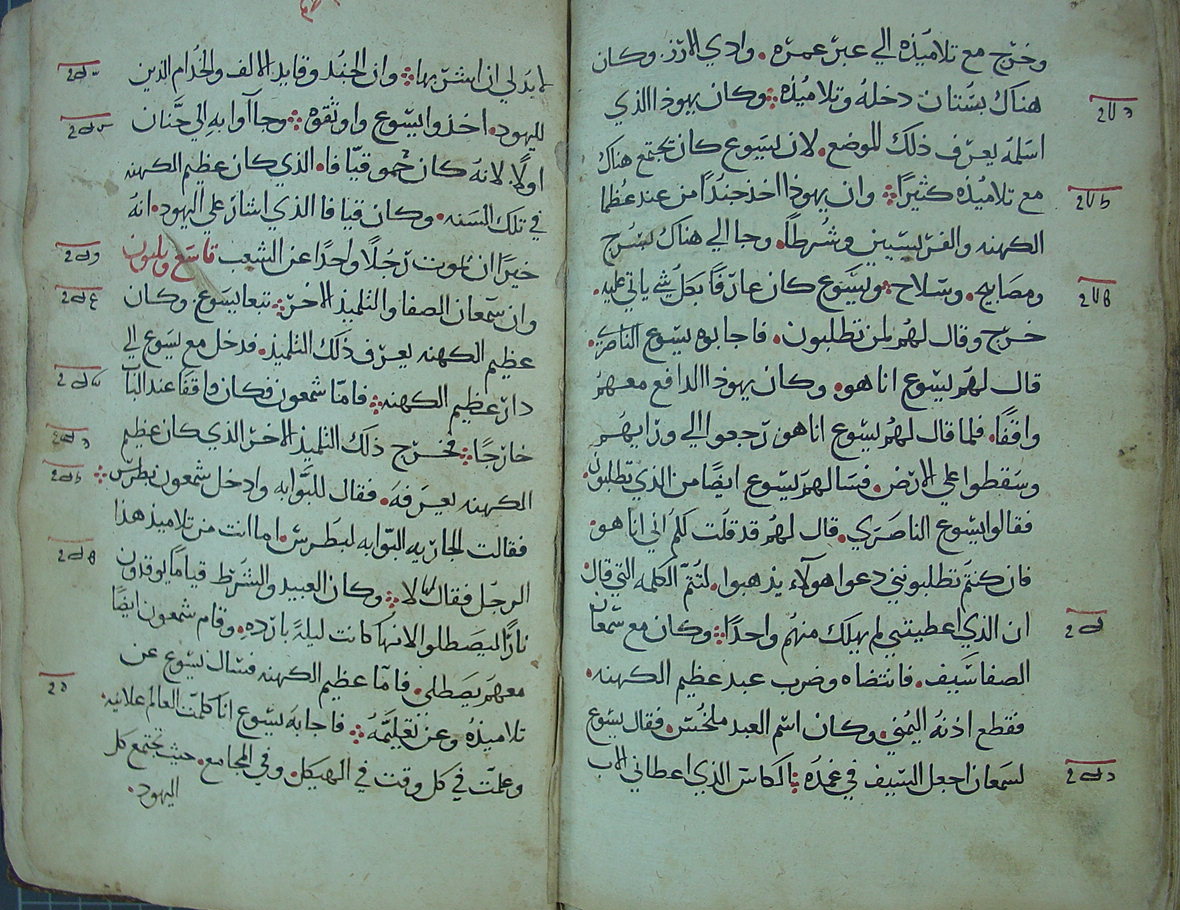 وخرج مع تلاميذه الي عبر عمره. وادي الارز. وكان
هناك بستان دخله وتلاميذه وكان يهوذا الذي
اسلمه يعرف ذلك الموضع. لان يسوع كان يجتمع هناك
مع تلاميذه كثيرًا وان يهوذا اخذ جندًا من عند عظما
الكهنه والفريسيين وشرطًا. وجا الي هناك بسرج
ومصابيح. وسلاح ويسوع كان عارفًا بكل شي ياتي عليه.
خرج وقال لهم لمن تطلبون. فاجابوه يسوع الناصري.
قال لهم يسوع انا هو. وكان يهوذا الدافع معهم
واقفًا. فلما قال لهم يسوع انا هو. رجعوا الي ورايهم
وسقطوا علي الارض. فسالهم يسوع ايضًا من الذي تطلبون.
فقالوا يسوع الناصري. قال لهم قد قلت لكم اني انا هو.
فان كنتم تطلبونني دعوا هولاء يذهبوا. لتتم الكلمه التي قال.
ان الذي اعطيتني لم يهلك منهم واحدًا وكان مع سمعان
الصفا سيف. فانتضاه وضرب عبد عظيم الكهنه.
فقطع اذنه اليمني. وكان اسم العبد ملخس. فقال يسوع
لسمعان اجعل السيف في غمده الكاس الذي اعطاني الاب
لابد لي ان اشربها وان الجند وقايد الالف والخدام الذين
لليهود. اخذوا يسوع واوثقوه وجاآوا به الي حنان
اولًا لانه كان حمو قيافا. الذي كان عظيم الكهنه
في تلك السنه. وكان قيافا الذي اشار علي اليهود. انه
خيرًا ان يموت رجلًا واحدًا عن الشعب تاسع وثلثون
وان سمعان الصفا والتلميذ الاخر تبعا يسوع وكان
عظيم الكهنه يعرف ذلك التلميذ. فدخل مع يسوع الي
دار عظيم الكهنه فامّا شمعون فكان واقفًا عند الباب
خارجًا فخرج ذلك التلميذ الاخر الذي كان عظيم
الكهنه يعرفه. فقال للبوابه وادخل شمعون بطرس
فقالت الجاريه البوابه لبطرس. اما انت من تلاميذ هذا
الرجل فقال لا وكان العبيد والشرط قيامًا يوقدون
نارًا ليصطلوا لانها كانت ليلةً بارده. وقام شمعون ايضًا
معهم يصطلي. فامّا عظيم الكهنه فسال يسوع عن
تلاميذه وعن تعليمه فاجابه يسوع انا كلمت العالم علانيه.
وعلمت في كل وقت في الهيكل. وفي المجامع. حيث يجتمع كل
اليهود.